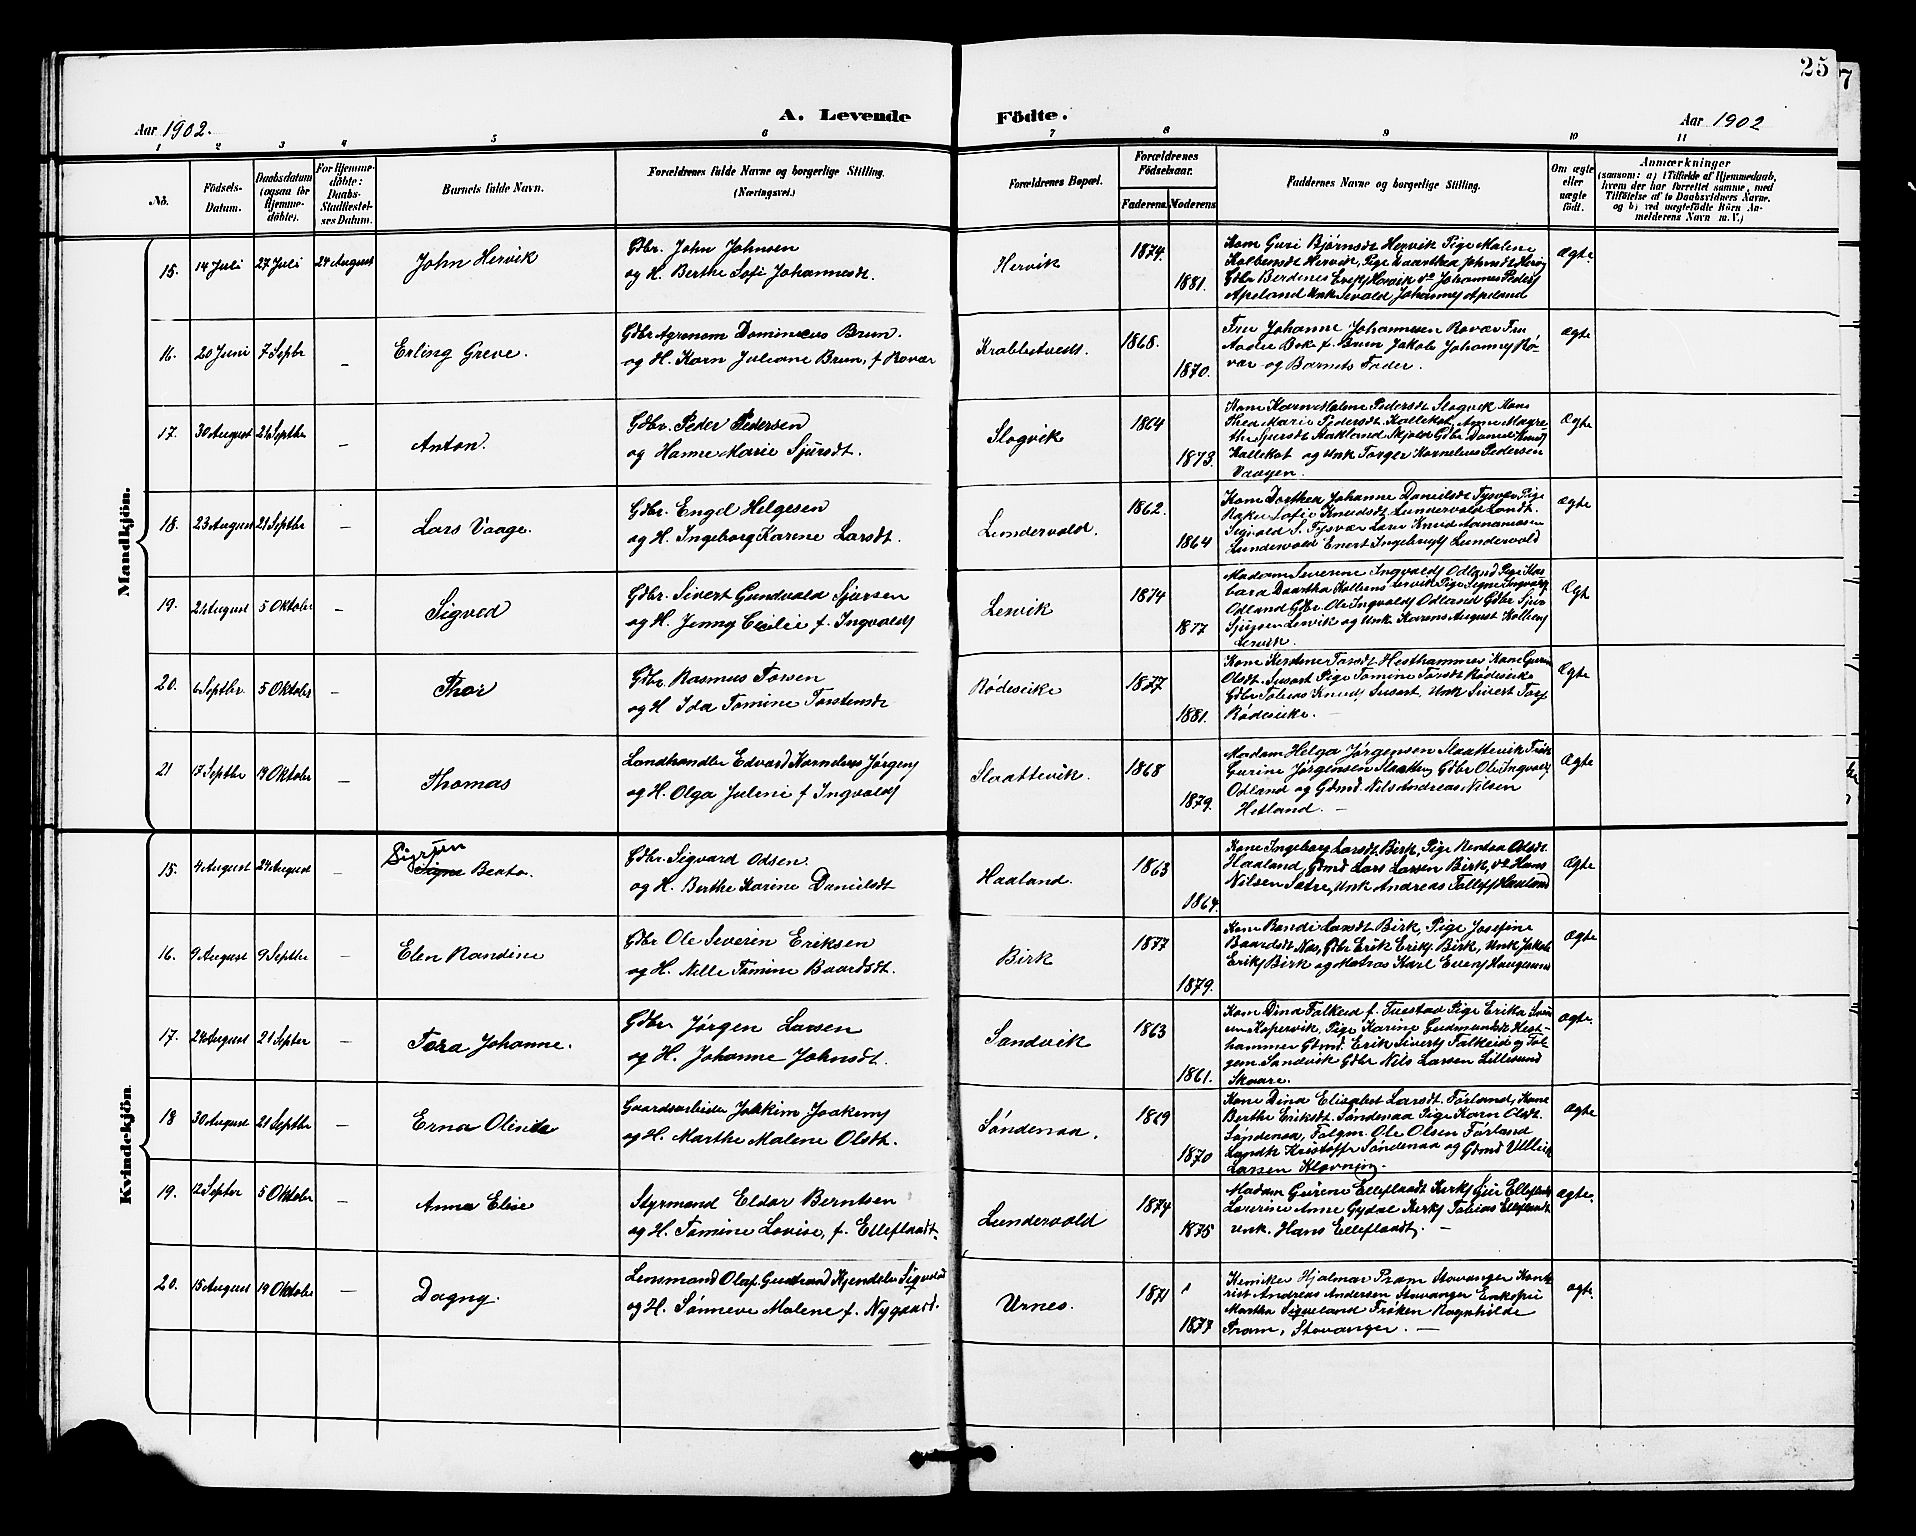 25
7
Aar 1902.
A. Levende Födte.
Aar 1902
1 2 3 4 5 6 7 8 9 10 11
No.
Födsels-Datum.
Daabsdatum (ogsaa for Hjemme-döbte).
For Hjemme-döbte: Daabs-Stadfæstel-ses Datum.
Barnets fulde Navn.
Forældrenes fulde Navne og borgerlige Stilling. (Næringsvei.)
Forældrenes Bopæl.
Forældrenes Födselsaar.
Faderens. Moderens.
Faddernes Navne og borgerlige Stilling.
Om ægte eller uægte födt.
Anmærkninger
(saasom: a) i Tilfælde af Hjemmedaab,
hvem der har forrettet samme, med
Tilföielse af to Daabsvidners Navne.
og b) ved uægtefödte Börn An-
melderens Navn m. V.)
Mandkjön.
15. 14 Juli 27 Juli 24 August John Hervik
Gdbr. John Johnsen
og H. Berthe Sofi Johannesdt.
Hervik 1874. 1881.
Kone Guri Bjørnsdt Hervik Pige Malene
Kolbensdt Hervik, Pige Daarthea Johnsdt Hervig
Gdbr Berdines Eriks Hervik do Johannes Peders
Apeland Unk Sevald Johannes Apeland
Ægte
16. 20 Juni 7 Septbr – Erling Greve.
Gdbr Agronom Dominicus Brun.
og H. Karn Juliane Brun, f Rovær
Krabbetvedt. 1868. 1870.
Fru Johanne Johannesen Rovær Fru
Aadre Bok f. Brun Jakob Johannes Rö-
vær og Barnets Fader.
ægte
17. 30 August 21 Septbr – Anton.
Gdbr. Peder Pedersen
og Hanne Marie Sjursdt.
Slogvik 1864 1873.
Kone Karn Malene Pedersdt Slogvik Kone
Thea Marie Pedersdt Kallekot, Anne Magre-
the Sjursdt Aakland Skjold Gdbr Daniel Knuds
Kallekot og Unk Torger Kornelius Pedersen
Vaagen.
Ægte
18. 23 August 21 Septbr – Lars Vaage.
Gdbr. Engel Helgesen
og H. Ingeborg Karine Larsdt.
Lundervold. 1862. 1864
Kone Dorthea Johanne Danielsdt Tysvær Pige
Sofie Knudsdt Lundervold Landt.
Sigvald S. Tysvær Knud Aanensen
Lundervold Enert Ingebrigts Lundervold
Ægte
19. 24 August 5 Oktober – Sigved
Gdbr. Sivert Gundvald Sjursen
og H. Jenny Cicilie f. Ingvalds
Lervik 1874 1877
Madam Severine Ingvalds Odland Pige Bar-
bara Daartha Kolbens Lervik Pige Signe Ingvalds
Odland Gdbr Ole Ingvalds Odland Gdbr Sjur
Sjursen Lervik og Unk Karens August Kolbens
Lervik
Ægt
20. 6 Septbr. 5 Oktober – Thor
Gdbr. Rasmus Torsen
og H Ida Tomine Torstensdt
Rødseike 1877 1881.
Kone Kirstine Torsdt Hesthammer Kone Gurine
Olsdt. Susort Pige Tomine Torsdt Rødseike
Gdbr Tobias Knuds Susort, Unk Sivert Tors
Rødseike. –
Ægte
21 17 Septbr 19 Oktober – Thomas
Landhandler Edvard Kornelius Jørgens
og H. Olga Juline f Ingvalds
Slaattevik. 1868 1879.
Madam Helga Jørgensen Slaattevik Frøk
Gurine Jørgensen Slaattev, Gdbr Ole Ingvalds
Odland og Gdmd. Nils Andreas Nilsen
Hetland. –
Ægte
Kvindekjön
15. 4 August 24 August – Sigrun
Signe Beate.
Gdbr Sigvard Odsen.
og H. Berthe Karine Danielsdt
Haaland. 1863 1864.
Kone Ingeborg Larsdt Birk, Pige Rentaa Olsdt.
Haaland, Gdmd Lars Larsen Birk, do Hans
Nilsen Sætre, Unk Andreas Tollefs Haaland
Ægte
16. 9 August 9 Septbr – Elen Randine
Gdbr Ole Severin Eriksen
og H. Nille Tomine Baardsdt.
Birk 1877 1879.
Kone Randi Larsdt Birk, Pige Josefine
Baardsdt Næs, Gdbr Erik Eriks. Birk, Unk Jakob
Eriks Birk og Matros Karl Evens Haugesund
Ægte
17. 24 August 21 Septbr – Tora Johanne.
Gdbr. Jørgen Larsen
og H. Johanne Johnsdt.
Sandvik 1863 1861.
Kone Dina Falkeid f. Tuestad Pige Erika
Kopervik, Pige Karine Gudmundsdt Hest-
hammer Gdmd. Erik Siverts Falkeid og Tøl-
gem. Sandvik Gdbr Nils Larsen Lillesund
Skaare.
Ægte.
18 30 August 21 Septbr – Erna Olinda
Gaardsarbeider Joakim Joakims
og H. Marthe Malene Olsdt.
Søndenaa. 1869 1870
Kone Dina Elisabet Larsdt. Førland, Kone
Berthe Eriksdt. Søndenaa Pige Karn Olsdt.
Søndenaa, Folgm. Ole Olsen Førland
Landh Kristoffer Søndenaa og Gdmd Villiam
Larsen Klovning.
Ægte
19. 12 Septbr 5 Oktober – Anna Elise
Styrmand Eldar Berntsen
og H. Tomine Lovise, f. Elleflaadt.
Lundervold 1874 1875
Madam Gurine Elleflaadt Kirks Gju Elleflaadt
Lærerine Anne Gydal Kirks Tobias Elleflaadt
Unk. Hans Elleflaadt. –
Ægte.
20. 15 August 19 Oktober – Dagny.
Lensmand Olaf Gustavad Kjendslev Sigveland
og H. Sønneve Malene f. Nygaard.
Urnes. 1871 1877
Kemiker Hjalmar Pram Stavanger Kont-
rist Andreas Andersen Stavanger Enkefru
Martha Sigveland Frøken Ragnhilde
Pram, Stavanger. –
ægte.